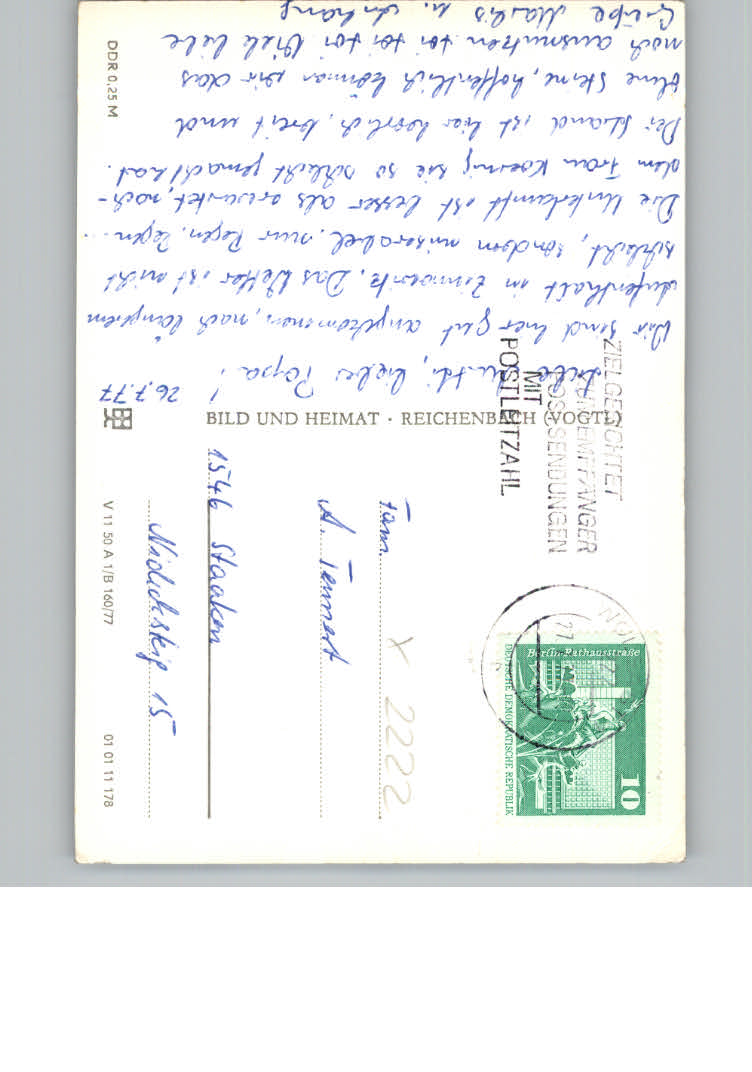 26.7.77
Liebe Mutti, lieber Papa!
Wir sind hier gut angekommen, nach längerem
Aufenthalt in Zinnowitz. Das Wetter ist nicht
schlecht, sondern miserabel, nur Regen, Regen...
Die Unterkunft ist besser als erwartet, nach-
dem Frau Koernig sie so schlecht gemacht hat.
Der Strand ist hier herrlich, breit und
ohne Steine, hoffentlich können wir das
noch ausnutzen toi toi toi Viele liebe
Grüße u. Anhang
Fam.
A. Tennert
1546 Staaken
15
X 2222
BILD UND HEIMAT · REICHENBACH (VOGTL)
DDR 0,25 M
V 11 50 A 1/B 160/77
01 01 11 178
ZIELGERICHTET
ZUM EMPFÄNGER
POSTSENDUNGEN
MIT
POSTLEITZAHL
Berlin-Rathausstraße
DEUTSCHE DEMOKRATISCHE REPUBLIK
10